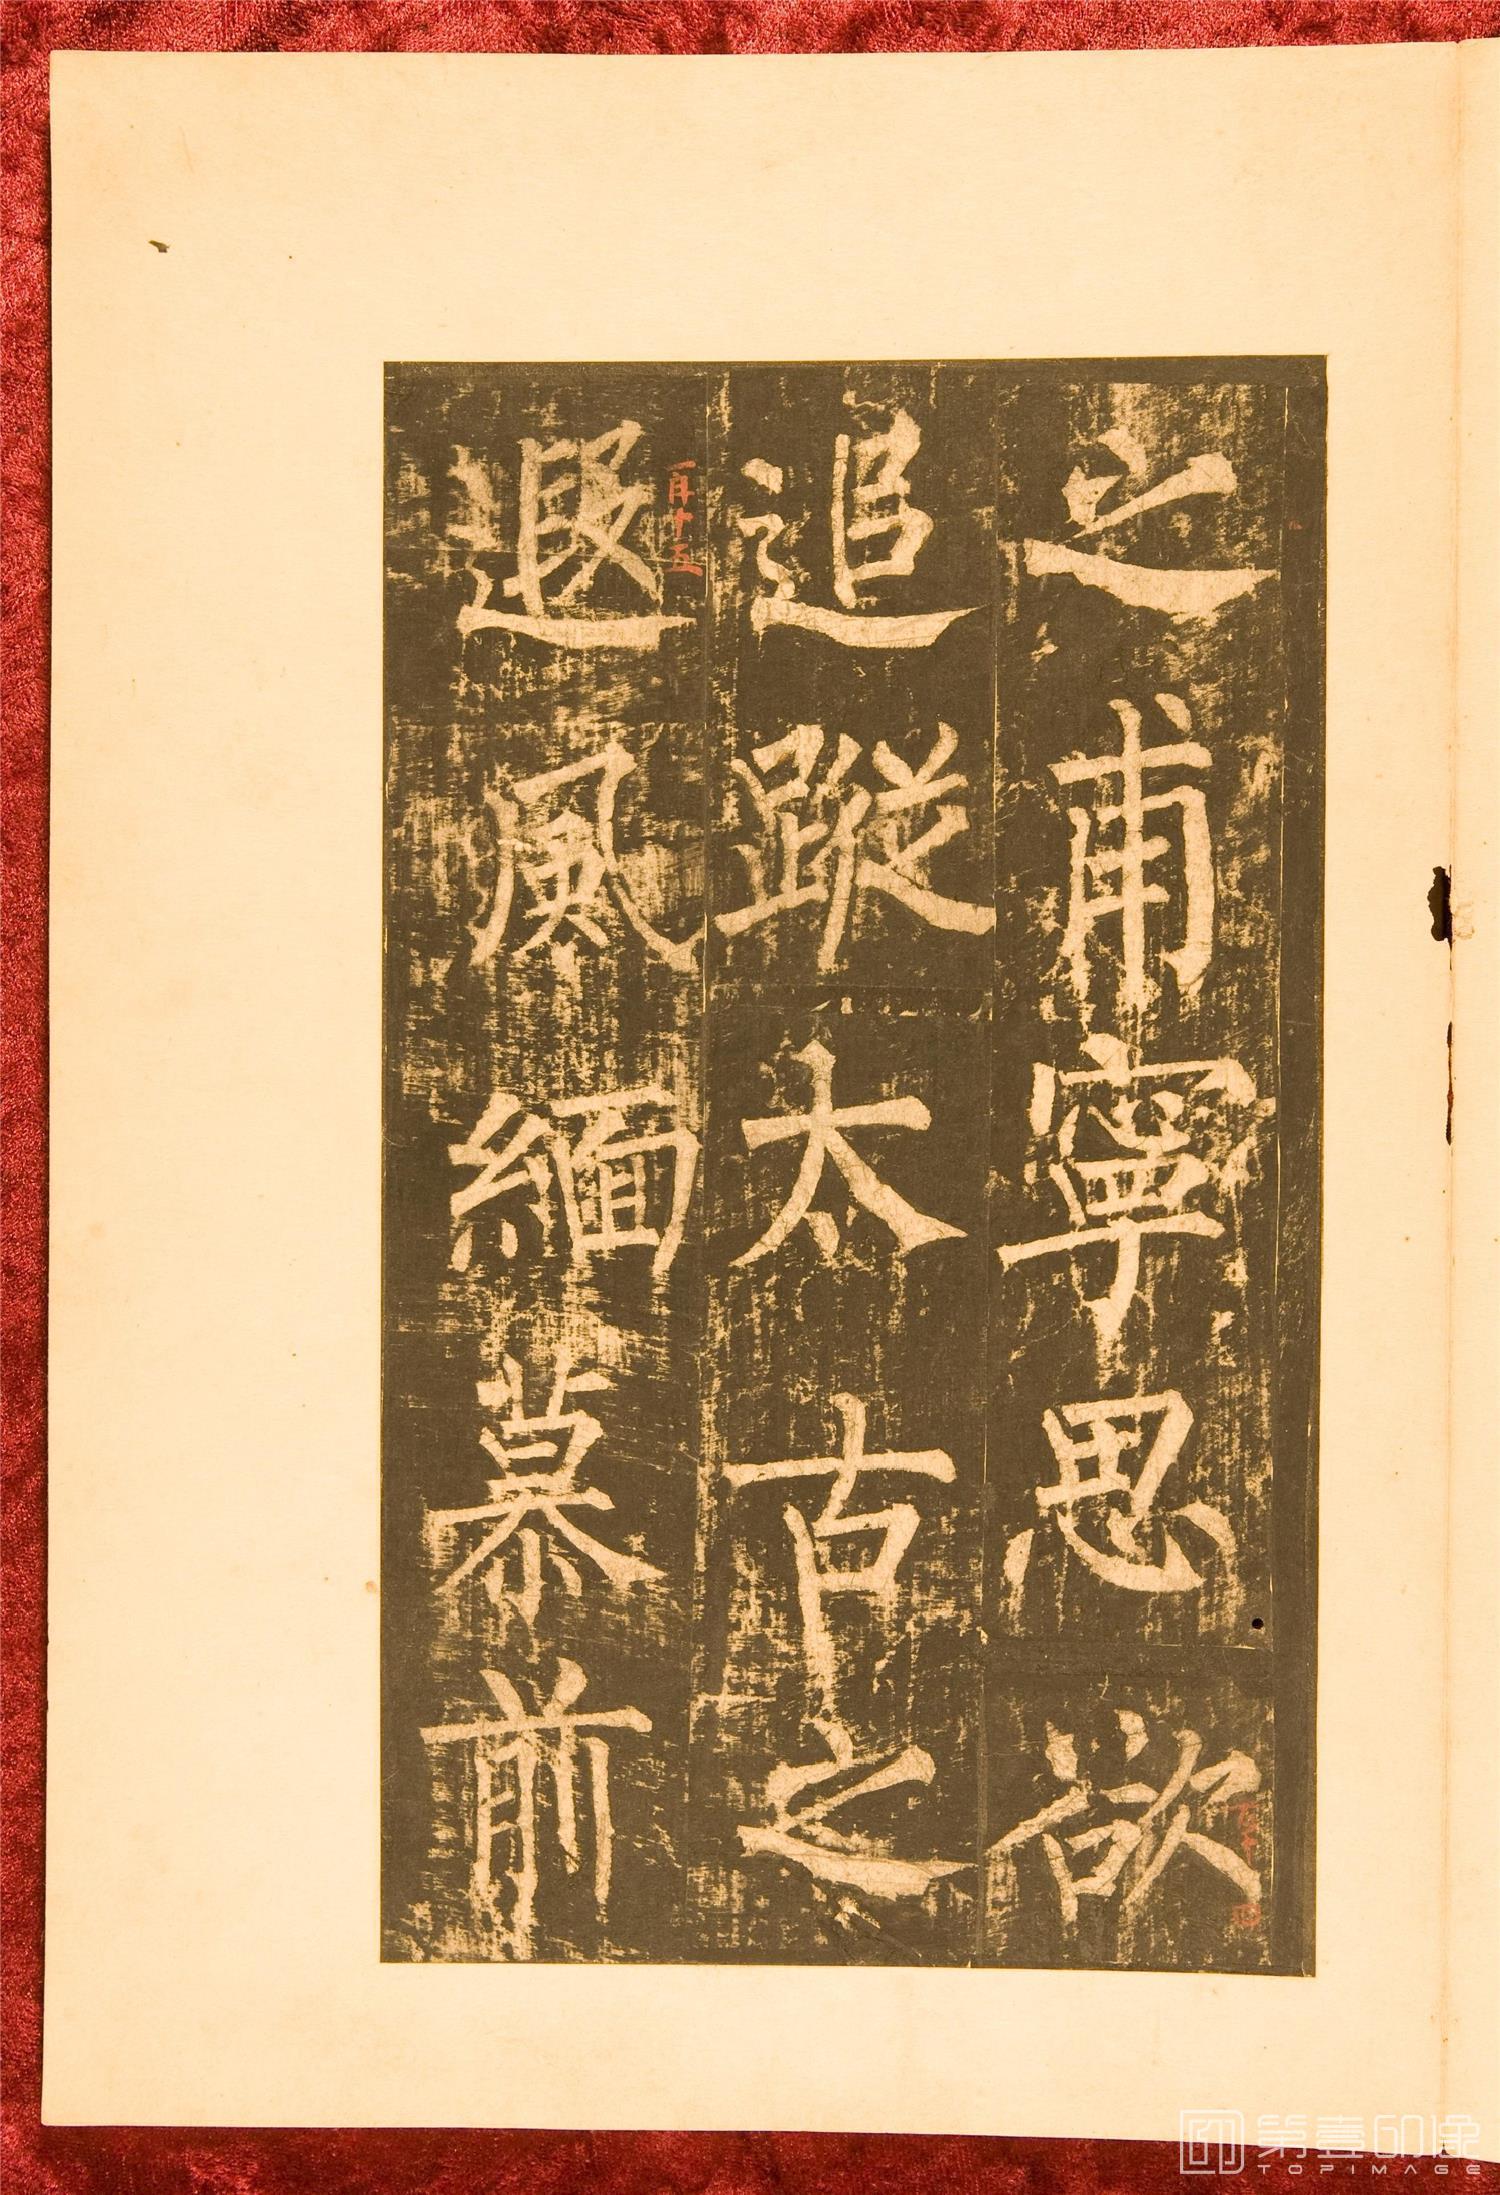 之甫寧思欲
追蹤太古之
遐風緬慕前
第壹印像
TOPIMAGE